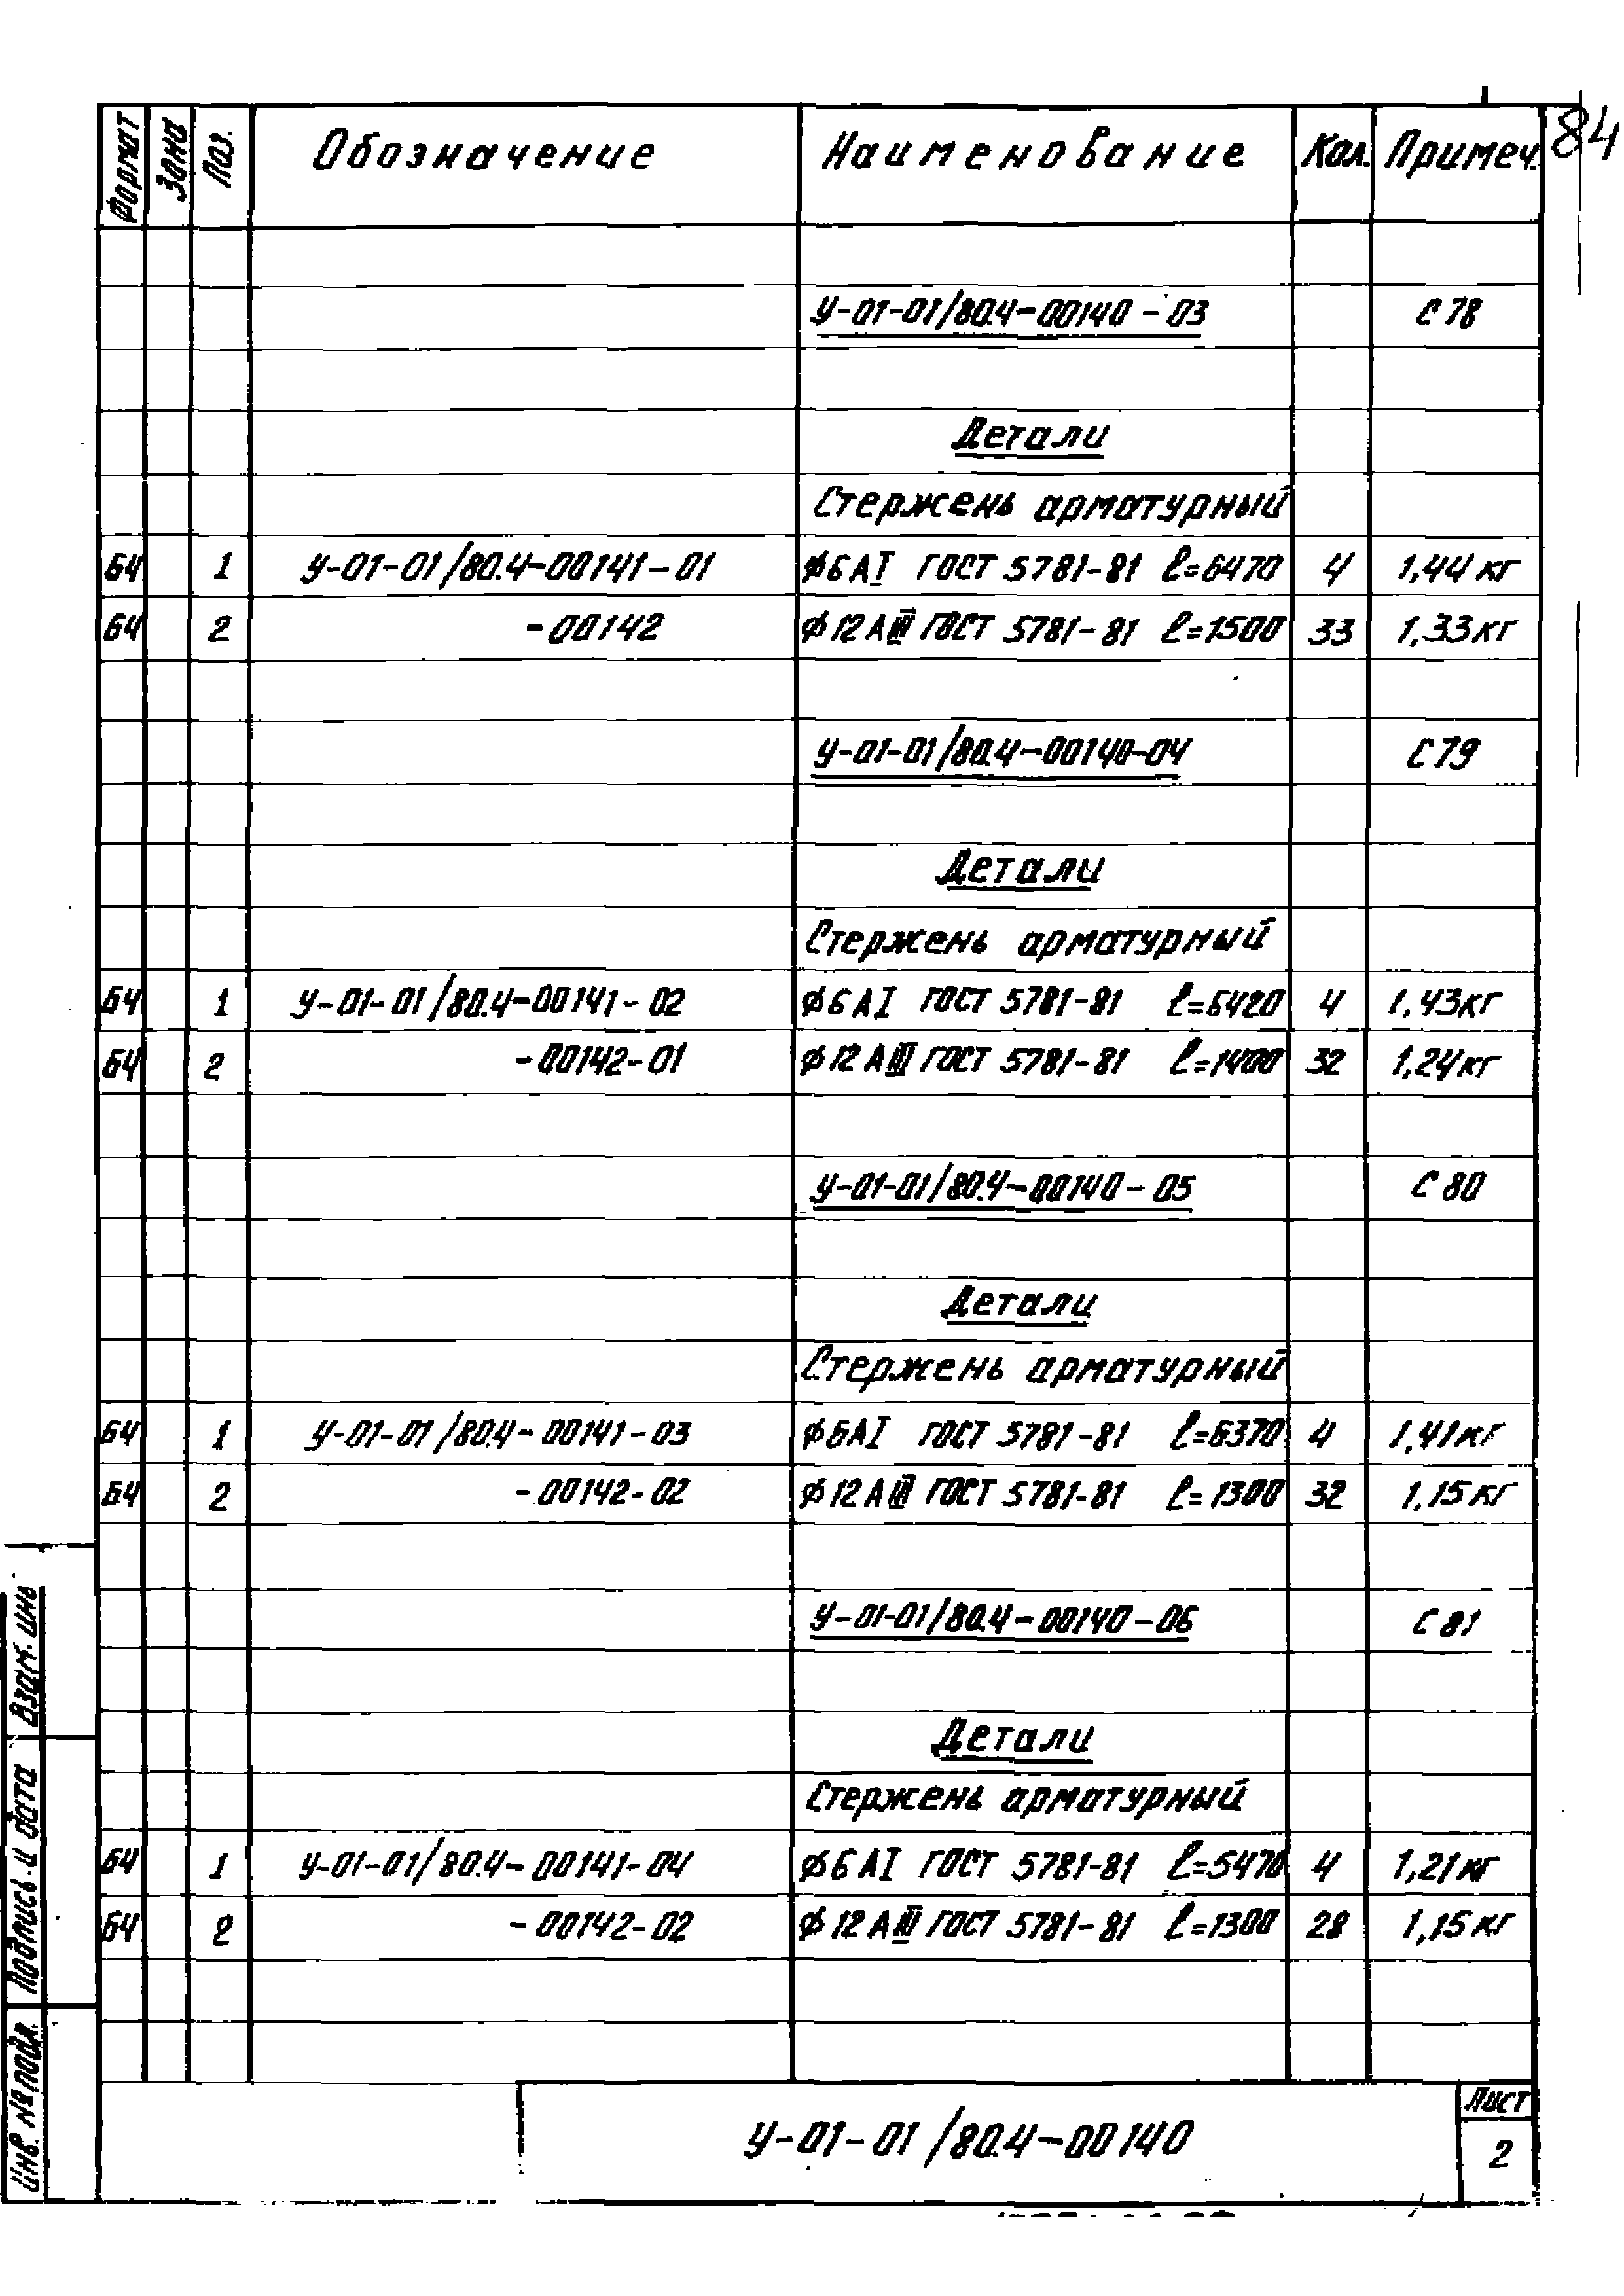 84
Формат Зона Поз. Обозначение Наименование Кол. Примеч.
У-01-01/80.4-00140-03 С 78
Детали
Стержень арматурный
БЧ 1 У-01-01/80.4-00141-01 ϕ6АI ГОСТ 5781-81 ℓ=6470 4 1,44 кг
БЧ 2 -00142 ϕ12АIII ГОСТ 5781-81 ℓ=1500 33 1,33 кг
У-01-01/80.4-00140-04 С 79
Детали
Стержень арматурный
БЧ 1 У-01-01/80.4-00141-02 ϕ6АI ГОСТ 5781-81 ℓ=6420 4 1,43 кг
БЧ 2 -00142-01 ϕ12АIII ГОСТ 5781-81 ℓ=1400 32 1,24 кг
У-01-01/80.4-00140-05 С 80
Детали
Стержень арматурный
БЧ 1 У-01-01/80.4-00141-03 ϕ6АI ГОСТ 5781-81 ℓ=6370 4 1,41 кг
БЧ 2 -00142-02 ϕ12АIII ГОСТ 5781-81 ℓ=1300 32 1,15 кг
У-01-01/80.4-00140-06 С 81
Детали
Стержень арматурный
БЧ 1 У-01-01/80.4-00141-04 ϕ6АI ГОСТ 5781-81 ℓ=5470 4 1,21 кг
БЧ 2 -00142-02 ϕ12АIII ГОСТ 5781-81 ℓ=1300 28 1,15 кг
Взам. инв
Подпись и дата
Инв. № подл.
У-01-01/80.4-00140
Лист
2